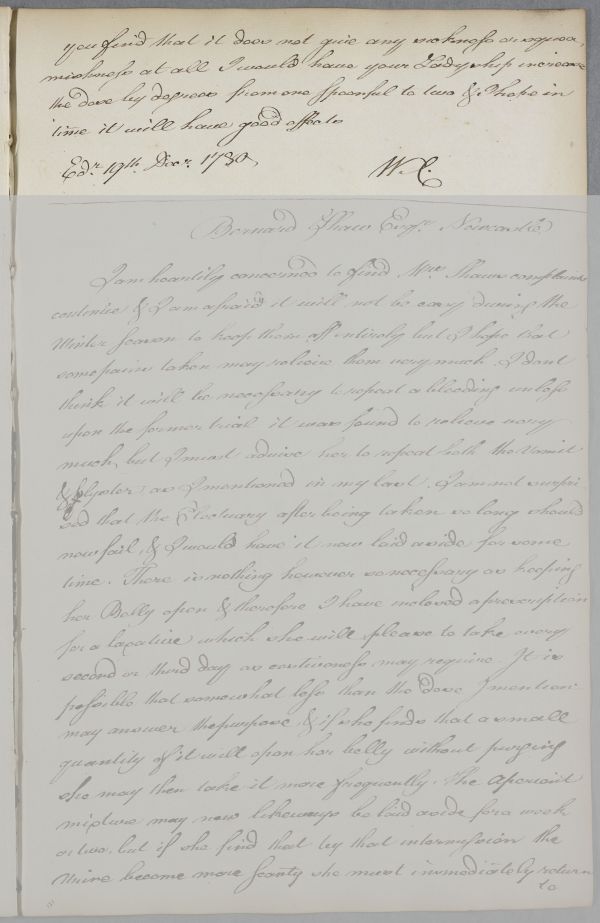 you find that it does not give any sickness or squea-
mishness at all I would have your Ladyship increase
the dose by degrees from one spoonful to two & I hope in
time it will have good effects
Edr. 19th. Decr. 1780 W. C.
Bernard Shaw Esqr. Newcastle
I am heartily concerned to find Mrs. Shaws complaints
continue & I am afraid it will not be easy during the
Winter season to keep them off entirely but I hope that
some pains taken may relieve them very much. I dont
think it will be necessary to repeat a bleeding unless
upon the former trial it was found to relieve very
much, but I must advise her to repeat both the Vomit
& Glyster as I mentioned in my last. I am not surpri-
sed that the Electuary after being taken so long should
now fail, & I would have it now laid aside for some
time. There is nothing however so necessary as keeping
her Belly open & therefore I have inclosed a prescription
for a laxative which she will please to take every
second or third day as costiveness may require. It is
possible that somewhat less than the dose I mention
may answer the purpose & if she finds that a small
quantity of it will open her belly without purging
she may then take it more frequently. The Aperient
mixture may now likeways be laid aside for a week
or two, but if she find that by that intermission the
Urine become more scanty she must immediately return
to